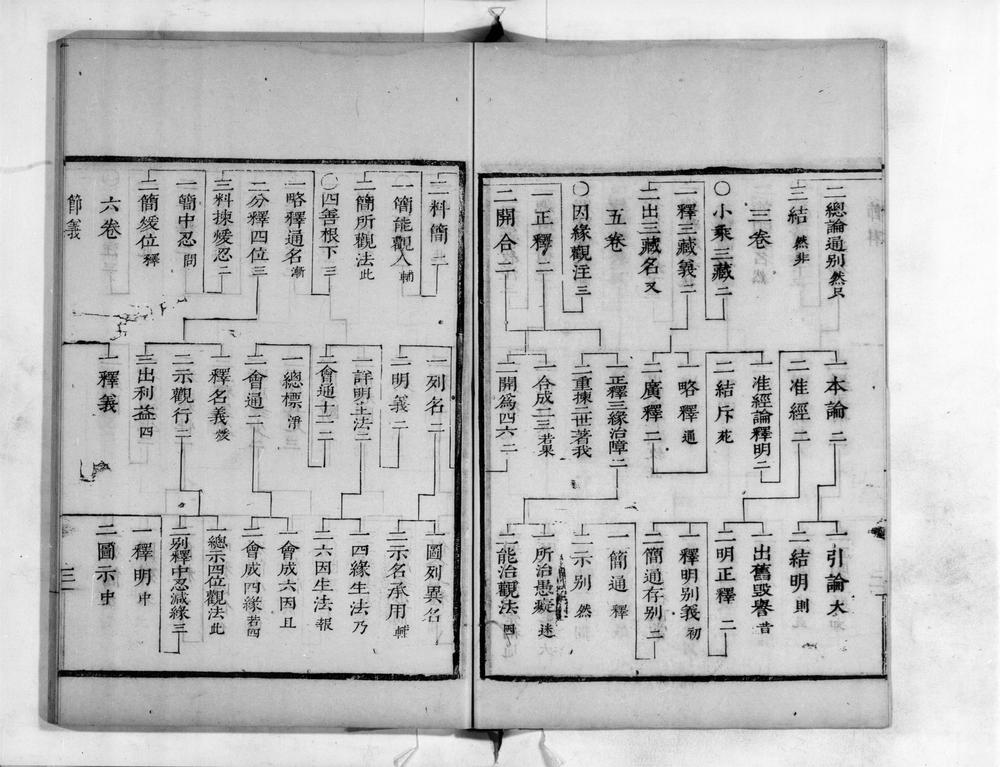 二總論通別 然只
二結 然非
三卷
○小乘三藏 二
一釋三藏義 二
二出三藏名 又
五卷
○因緣觀注 三
一正釋 二
二開合 二
一本論 二
二准經 二
一准經論釋明 二
二結斥 苑
一略釋 通
二廣釋 二
一正釋三緣治障 二
二重揀二世著我
一合成二三 若果
二開為四六 二
一引論 大
二結明 則
一出舊毀譽 昔
二明正釋 二
一釋明別義 初
二簡通存別 二
一簡通 釋
二示別 然
一所治愚癡 迷
二能治觀法 四
二料簡 二
一簡能觀人 輔
二簡所觀法 此
○四善根下 三
一略釋通名 漸
二分釋四位 三
三料揀煖忍 二
一簡中忍 問
二簡煖位 釋
六卷
節義
一列名 二
二明義 二
二詳明生法 二
二會通十二 二
一總標 淨
二會通 二
一釋名義 煖
二示觀行 二
三出利益 四
一釋義
一圖列異名
二示名承用 輔
一四緣生法 乃
二六因生法 報
一會成六因 且
二會成四緣 若四
一總示四位觀法 此
二別釋中忍減緣 三
一釋明 中
二圖示 中
三